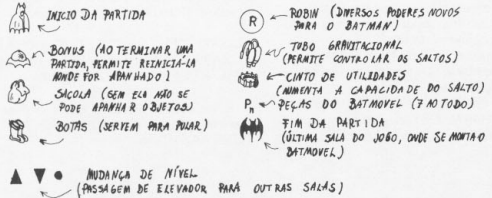 INICIO DA PARTIDA
BONUS (AO TERMINAR UMA
PARTIDA, PERMITE REINICIÁ-LA
AONDE FOR APANHADO)
SACOLA (SEM ELA NÃO SE
PODE APANHAR OBJETOS)
BOTAS (SERVEM PARA PULAR)
MUDANÇA DE NÍVEL
(PASSAGEM DE ELEVADOR PARA OUTRAS SALAS)
R ROBIN (DIVERSOS PODERES NOVOS
PARA O BATMAN)
TUBO GRAVITACIONAL
(PERMITE CONTROLAR OS SALTOS)
CINTO DE UTILIDADES
(AUMENTA A CAPACIDADE DO SALTO)
Pn PEÇAS DO BATMOVEL (7 NO TODO)
FIM DA PARTIDA
(ÚLTIMA SALA DO JOGO, ONDE SE MONTA O
BATMOVEL)